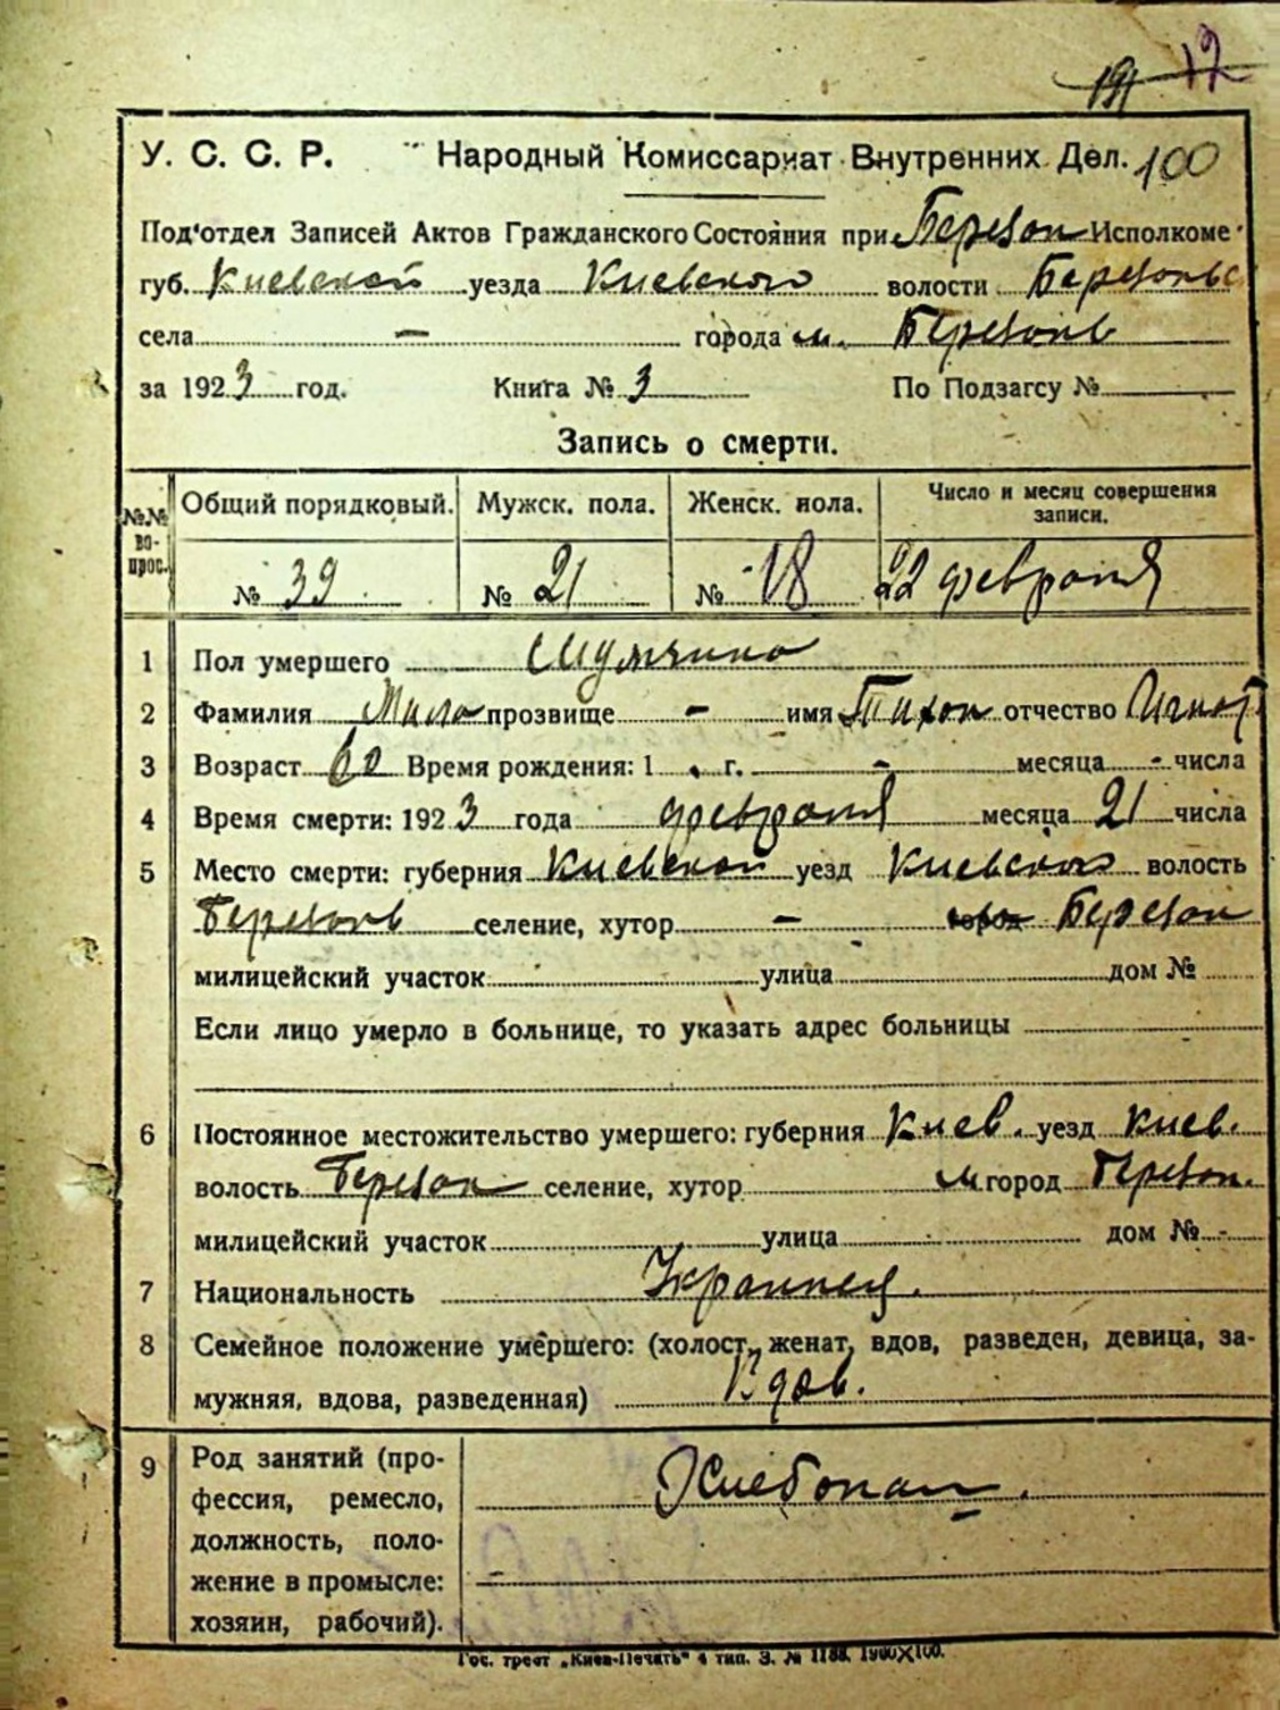 12
У. С. С. Р. Народный Комиссариат Внутренних Дел. 100
Под'отдел Записей Актов Гражданского Состояния при Березан Исполкоме
губ. Киевской уезда Киевского волости Березаньс
села — города м. Березань
за 1923 год. Книга № 3 По Подзагсу №
Запись о смерти.
№№ вопрос. Общий порядковый. Мужск. пола. Женск. пола. Число и месяц совершения записи.
№ 39 № 21 № 18 22 февраля
1 Пол умершего
2 Фамилия прозвище - имя Тихон отчество Игнат
3 Возраст 60 Время рождения: 1 г. - месяца - числа
4 Время смерти: 1923 года февраля месяца 21 числа
5 Место смерти: губерния Киевской уезд Киевского волость
Березань селение, хутор - город Березан
милицейский участок улица дом №
Если лицо умерло в больнице, то указать адрес больницы
6 Постоянное местожительство умершего: губерния Киев. уезд Киев.
волость Березан селение, хутор м город Березан.
милицейский участок улица дом № -
7 Национальность Украинец.
8 Семейное положение умершего: (холост, женат, вдов, разведен, девица, за-
мужняя, вдова, разведенная) Вдов.
9 Род занятий (про-
фессия, ремесло,
должность, поло-
жение в промысле:
хозяин, рабочий).
Хлебопаш.
Гос. трест „Киев-Печать" 4 тип. З. № 1188. 1900Х100.